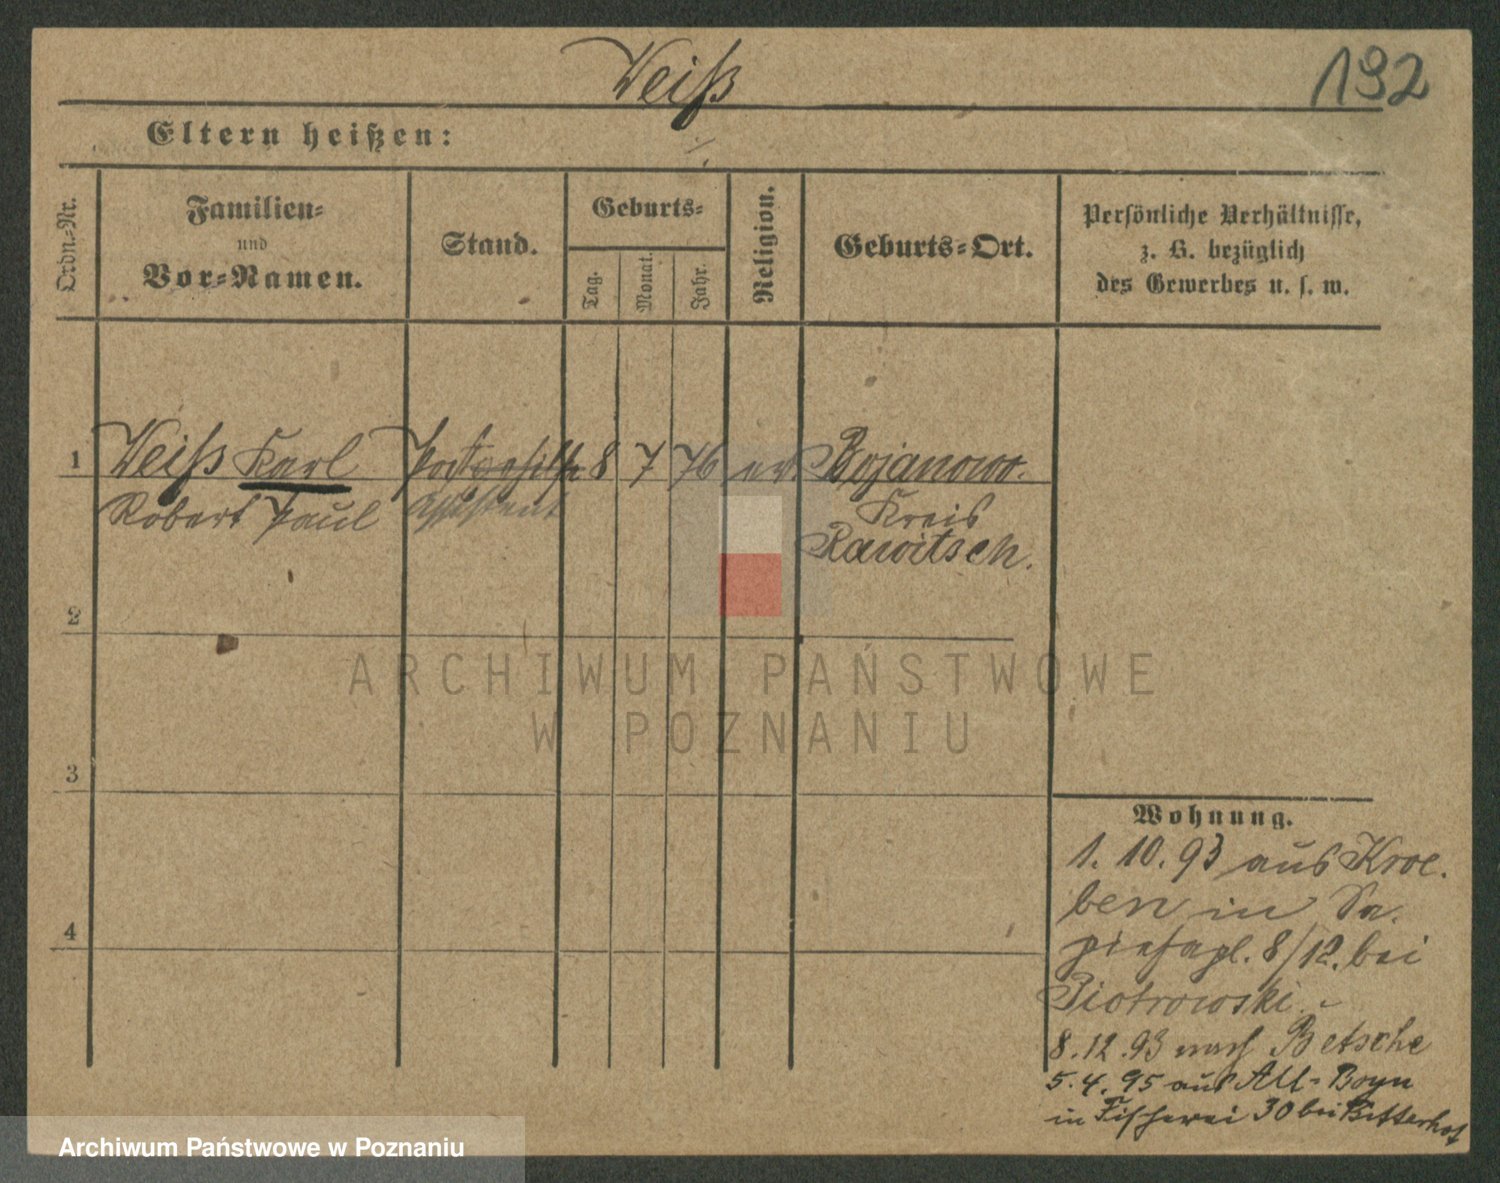 Weiß
192
Eltern heißen:
Ordn.-Nr.
Familien-
und
Vor-Namen.
Stand.
Geburts-
Tag.
Monat.
Jahr.
Religion.
Geburts-Ort.
Persönliche Verhältnisse,
z. B. bezüglich
des Gewerbes u. s. w.
1 Weiß Karl Postgehilfe 8 7 76 ev. Bojanowo.
Robert Paul Assistent Kreis
Rawitsch.
2
3
4
Wohnung.
1. 10. 93 aus Kroe-
ben in Sa-
piehapl. 8/12. bei
Piotrowski
8. 12. 93 nach Betsche
5. 4. 95 aus Alt-Boyn
in Fischerei 30 bei Bitterhof
ARCHIWUM PAŃSTWOWE
W POZNANIU
Archiwum Państwowe w Poznaniu